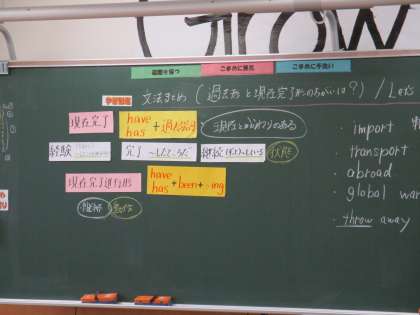 Grow
間隔を保つ
こまめに換気
こまめに手洗い
学習課題
文法まとめ (過去形と現在完了形のちがいは?) / Let's
現在完了
have
has +過去分詞
現在とかかわりのある
経験
完了 ～したところだ
継続
状態
現在完了進行形
have
has +been+～ing
継続
動作
・import
・transport
・abroad
・global war
・throw away